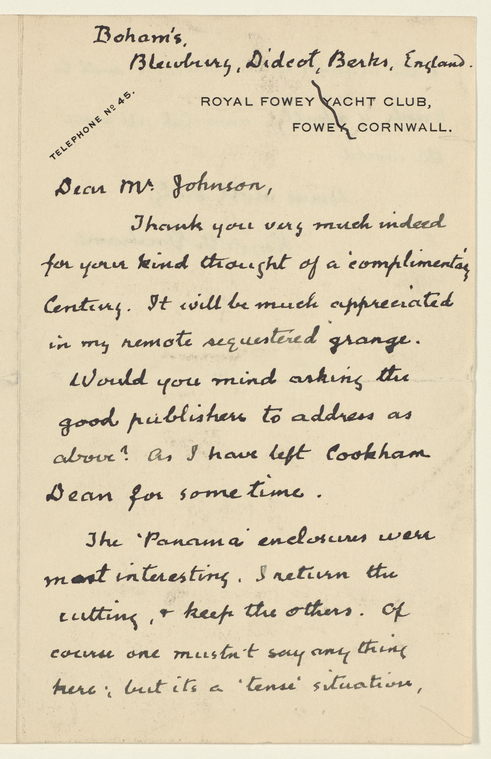 Boham's,
Blewbury, Didcot, Berks, England.
TELEPHONE Nº 45.
ROYAL FOWEY YACHT CLUB,
FOWEY, CORNWALL.
Dear Mr. Johnson,
Thank you very much indeed
for your kind thought of a 'complimentary
Century. It will be much appreciated
in my remote sequestered grange.
Would you mind asking the
good publishers to address as
above? As I have left Cookham
Dean for some time.
The 'Panama' enclosures were
most interesting. I return the
cutting, & keep the others. Of
course one mustn't say anything
here; but its a 'tense' situation,